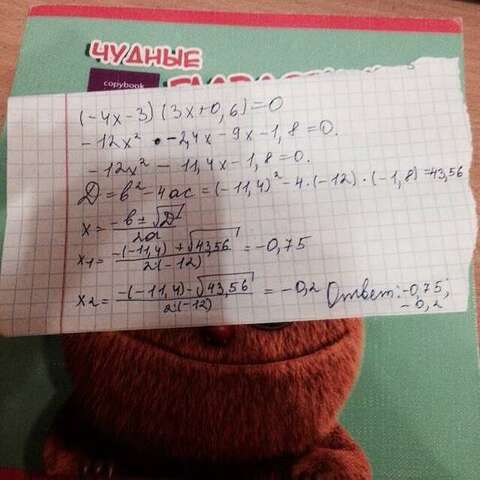 ЧУДНЫЕ
copybook
(-4x-3)(3x+0,6)=0
-12x² - 2,4x-9x-1,8=0.
-12x² - 11,4x-1,8=0.
D=b²-4ac=(-11,4)²-4·(-12)·(-1,8)=43,56
x=-b±√D/2a
x1=-(-11,4)+√43,56/2·(-12)=-0,75
x2=-(-11,4)-√43,56/2·(-12)=-0,2 Ответ:-0,75;
-0,2